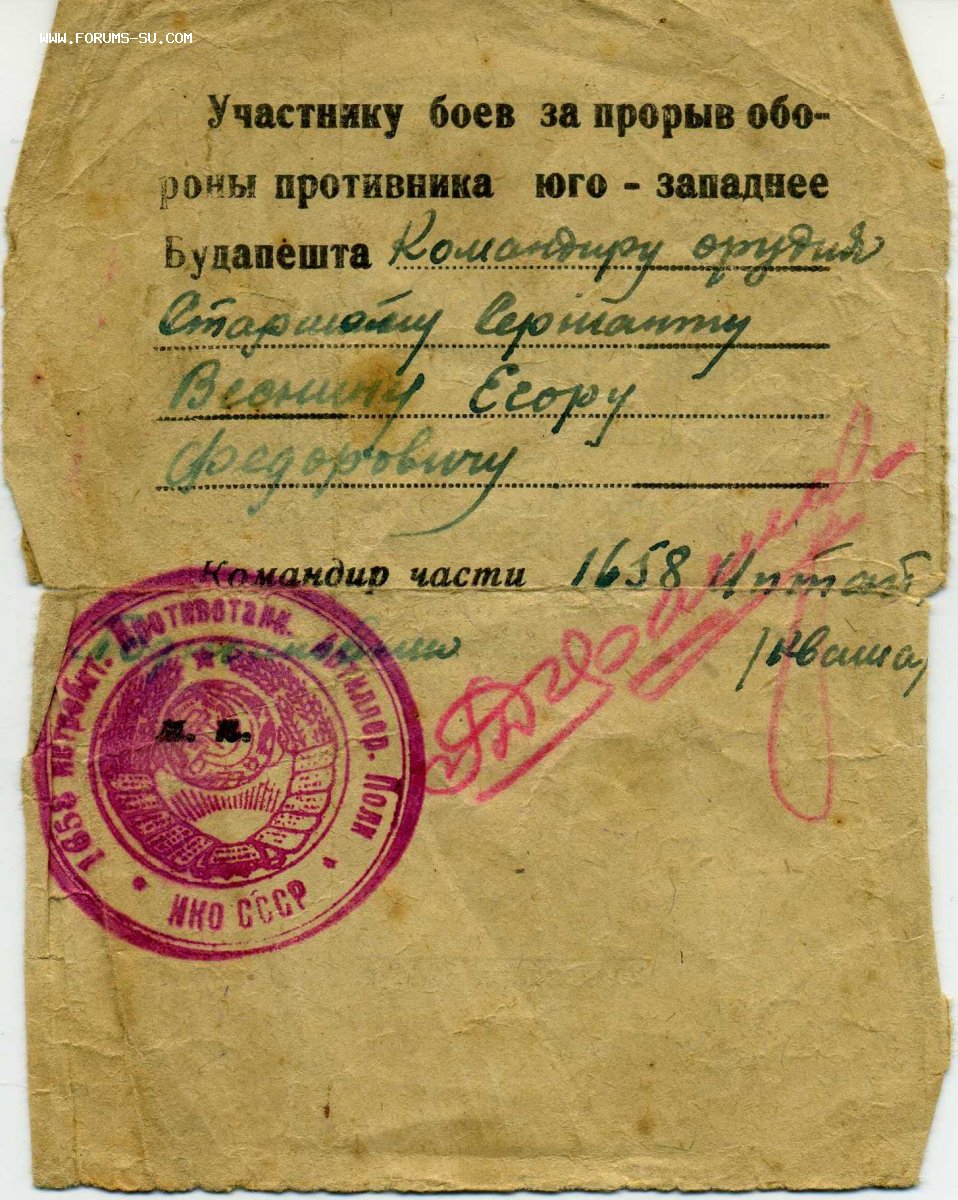 WWW.FORUMS-SU.COM
Участнику боев за прорыв обо-
роны противника юго - западнее
Будапешта Командиру орудия
Старшему Сержанту
Веснину Егору
Федоровичу
Командир части 1658 Иптап
/Кваша/
м. п.
1658 Истребит. Противотанк. Артиллер. Полк
НКО СССР